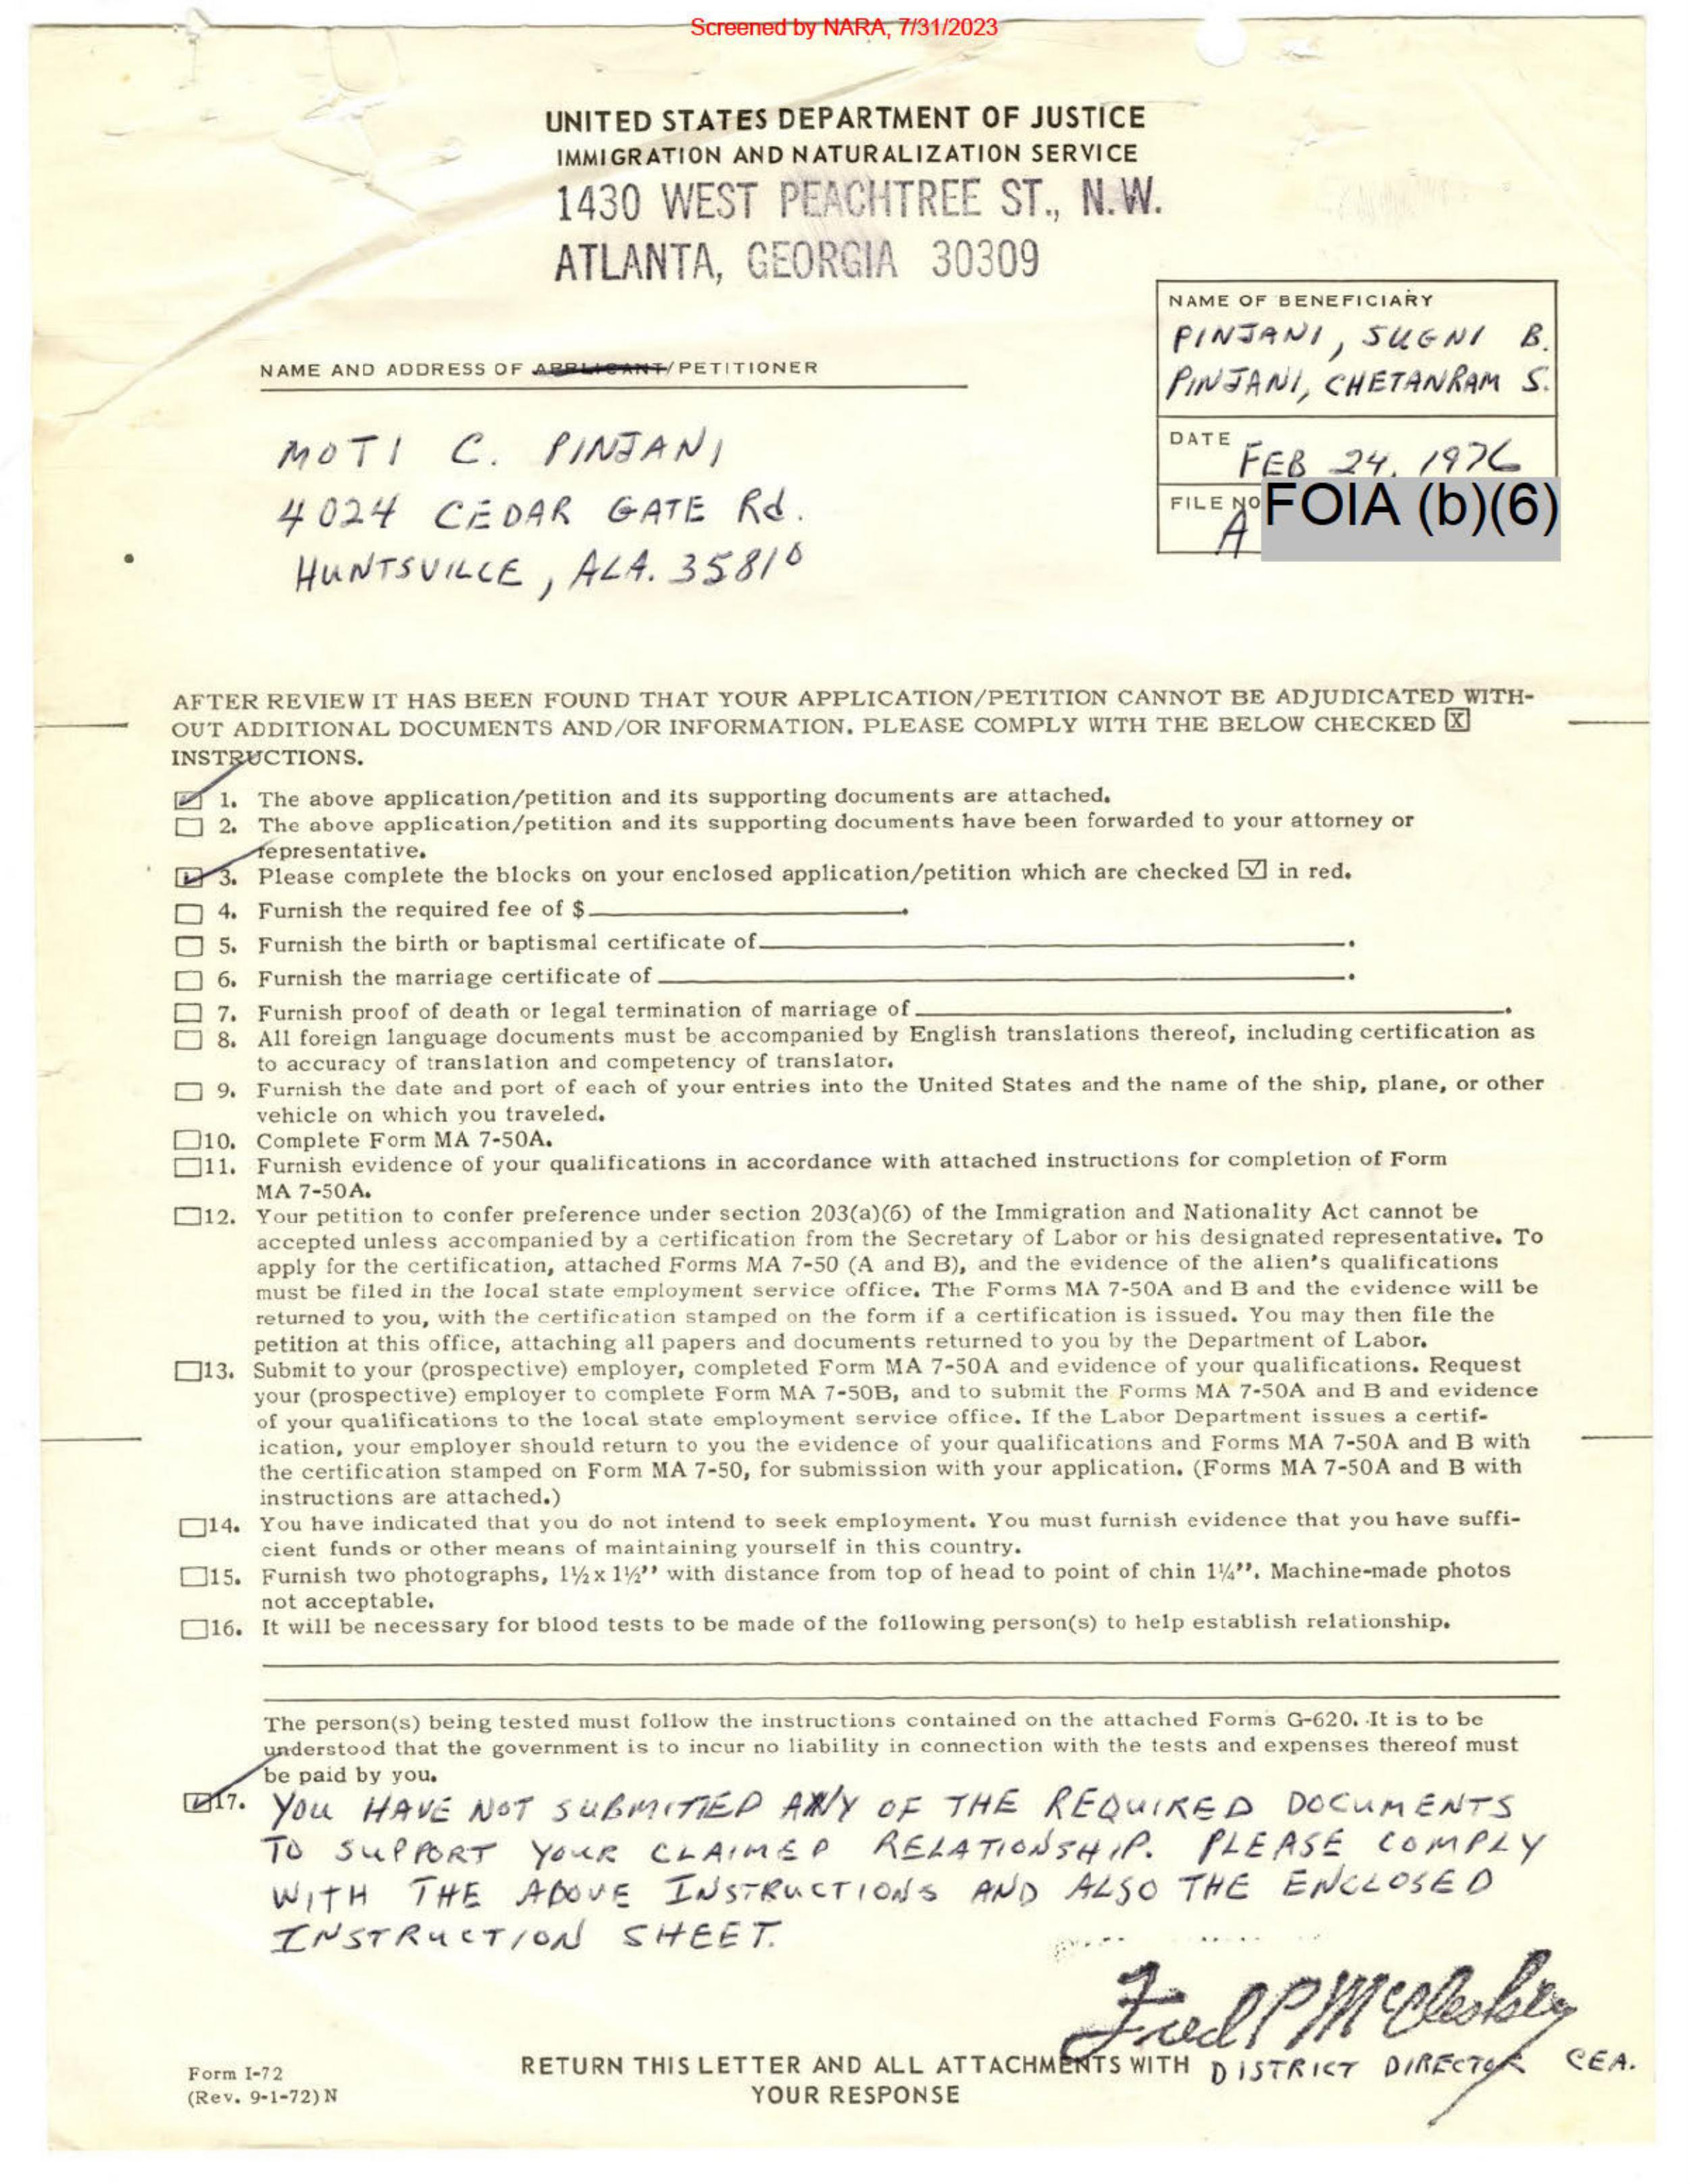 Screened by NARA, 7/31/2023
UNITED STATES DEPARTMENT OF JUSTICE
IMMIGRATION AND NATURALIZATION SERVICE
1430 WEST PEACHTREE ST., N.W.
ATLANTA, GEORGIA 30309
NAME OF BENEFICIARY
PINJANI, SUGNI B.
PINJANI, CHETANRAM S.
NAME AND ADDRESS OF APPLICANT/PETITIONER
DATE
FEB 24, 1976
MOTI C. PINJANI
4024 CEDAR GATE Rd.
HUNTSVILLE, ALA. 35810
FILE NO
A
FOIA (b)(6)
AFTER REVIEW IT HAS BEEN FOUND THAT YOUR APPLICATION/PETITION CANNOT BE ADJUDICATED WITH-
OUT ADDITIONAL DOCUMENTS AND/OR INFORMATION. PLEASE COMPLY WITH THE BELOW CHECKED X
INSTRUCTIONS.
1. The above application/petition and its supporting documents are attached.
2. The above application/petition and its supporting documents have been forwarded to your attorney or
representative.
3. Please complete the blocks on your enclosed application/petition which are checked ✓ in red.
4. Furnish the required fee of $ .
5. Furnish the birth or baptismal certificate of .
6. Furnish the marriage certificate of .
7. Furnish proof of death or legal termination of marriage of .
8. All foreign language documents must be accompanied by English translations thereof, including certification as
to accuracy of translation and competency of translator.
9. Furnish the date and port of each of your entries into the United States and the name of the ship, plane, or other
vehicle on which you traveled.
10. Complete Form MA 7-50A.
11. Furnish evidence of your qualifications in accordance with attached instructions for completion of Form
MA 7-50A.
12. Your petition to confer preference under section 203(a)(6) of the Immigration and Nationality Act cannot be
accepted unless accompanied by a certification from the Secretary of Labor or his designated representative. To
apply for the certification, attached Forms MA 7-50 (A and B), and the evidence of the alien's qualifications
must be filed in the local state employment service office. The Forms MA 7-50A and B and the evidence will be
returned to you, with the certification stamped on the form if a certification is issued. You may then file the
petition at this office, attaching all papers and documents returned to you by the Department of Labor.
13. Submit to your (prospective) employer, completed Form MA 7-50A and evidence of your qualifications. Request
your (prospective) employer to complete Form MA 7-50B, and to submit the Forms MA 7-50A and B and evidence
of your qualifications to the local state employment service office. If the Labor Department issues a certif-
ication, your employer should return to you the evidence of your qualifications and Forms MA 7-50A and B with
the certification stamped on Form MA 7-50, for submission with your application. (Forms MA 7-50A and B with
instructions are attached.)
14. You have indicated that you do not intend to seek employment. You must furnish evidence that you have suffi-
cient funds or other means of maintaining yourself in this country.
15. Furnish two photographs, 1½ x 1½" with distance from top of head to point of chin 1¼". Machine-made photos
not acceptable.
16. It will be necessary for blood tests to be made of the following person(s) to help establish relationship.
The person(s) being tested must follow the instructions contained on the attached Forms G-620. It is to be
understood that the government is to incur no liability in connection with the tests and expenses thereof must
be paid by you.
17. YOU HAVE NOT SUBMITTED ANY OF THE REQUIRED DOCUMENTS
TO SUPPORT YOUR CLAIMED RELATIONSHIP. PLEASE COMPLY
WITH THE ABOVE INSTRUCTIONS AND ALSO THE ENCLOSED
INSTRUCTION SHEET.
Fred P
DISTRICT DIRECTOR CEA.
Form I-72
(Rev. 9-1-72) N
RETURN THIS LETTER AND ALL ATTACHMENTS WITH
YOUR RESPONSE